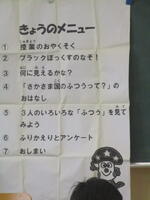 きょうのメニュー
① 授業のおやくそく
② ブラックぼっくすのなぞ!
③ 何に見えるかな?
④ 「さかさま国のふつうって?」の
おはなし
⑤ 3人のいろいろな「ふつう」を見て
みよう
⑥ ふりかえりとアンケート
⑦ おしまい